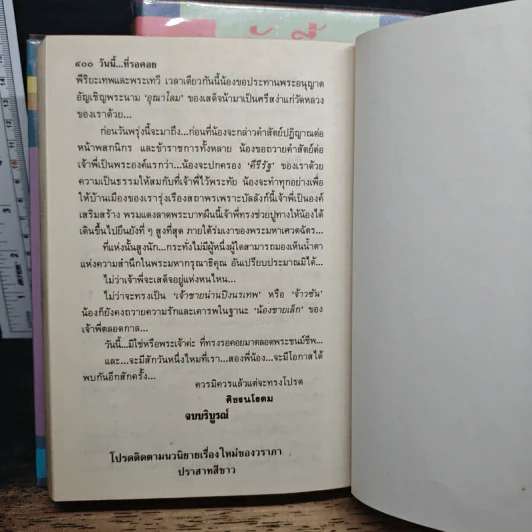 ๔๐๐ วันนี้...ที่รอคอย
พีริยะเทพและพระเทวี เวลาเดียวกันนี้น้องขอประทานพระอนุญาต
อัญเชิญพระนาม ‘อุณาโลม’ ของเสด็จน้ามาเป็นศรีสง่าแก่วัดหลวง
ของเราด้วย...
ก่อนวันพรุ่งนี้จะมาถึง...ก่อนที่น้องจะกล่าวคำสัตย์ปฏิญาณต่อ
หน้าพสกนิกร และข้าราชการทั้งหลาย น้องขอถวายคำสัตย์ต่อ
เจ้าพี่เป็นพระองค์แรกว่า...น้องจะปกครอง ‘คีรีรัฐ’ ของเราด้วย
ความเป็นธรรมให้สมกับที่เจ้าพี่ไว้พระทัย น้องจะทำทุกอย่างเพื่อ
ให้บ้านเมืองของเรารุ่งเรืองสถาพรเพราะบัลลังก์นี้เจ้าพี่เป็นองค์
เสริมสร้าง พรมแดงลาดพระบาทผืนนี้เจ้าพี่ทรงช่วยปูทางให้น้องได้
เดินขึ้นไปยืนยังที่ ๆ สูงที่สุด ภายใต้ร่มเงาของพระมหาเศวตฉัตร...
ที่แห่งนั้นสูงนัก...กระทั่งไม่มีผู้หนึ่งผู้ใดสามารถมองเห็นน้ำตา
แห่งความสำนึกในพระมหากรุณาธิคุณ อันเปรียบประมาณมิได้...
ไม่ว่าเจ้าพี่จะเสด็จอยู่แห่งหนไหน...
ไม่ว่าจะทรงเป็น ‘เจ้าชายน่านปิงนรเทพ’ หรือ ‘จ้าวซัน’
น้องก็ยังคงถวายความรักและเคารพในฐานะ ‘น้องชายเล็ก’ ของ
เจ้าพี่ตลอดกาล...
วันนี้...มิใช่หรือพระเจ้าค่ะ ที่ทรงรอคอยมาตลอดพระชนม์ชีพ...
และ...จะมีสักวันหนึ่งไหมที่เรา...สองพี่น้อง...จะมีโอกาสได้
พบกันอีกสักครั้ง...
ควรมิควรแล้วแต่จะทรงโปรด
ศิขรนโรดม
จบบริบูรณ์
โปรดติดตามนวนิยายเรื่องใหม่ของวราภา
ปราสาทสีขาว